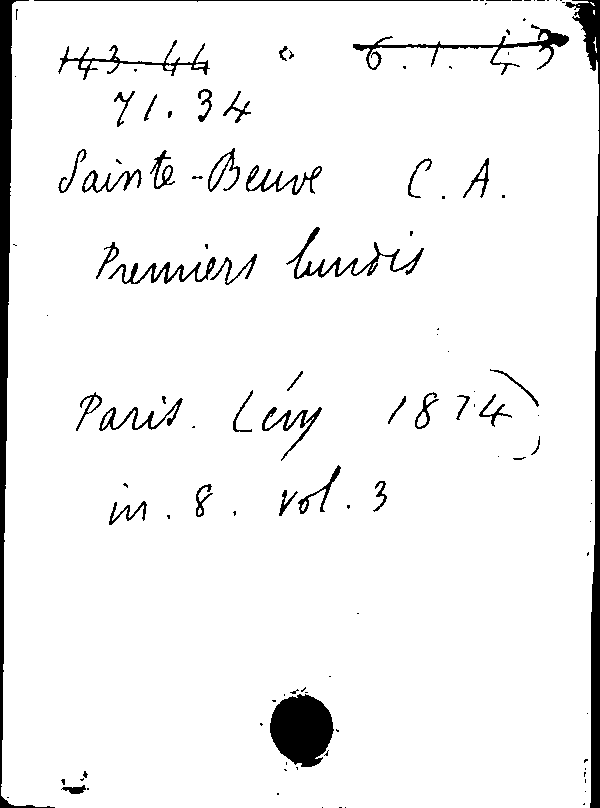 143.44 6.1.43
71.34
Sainte-Beuve C.A.
Premiers lundis
Paris. Lévy 1874
in.8. vol.3